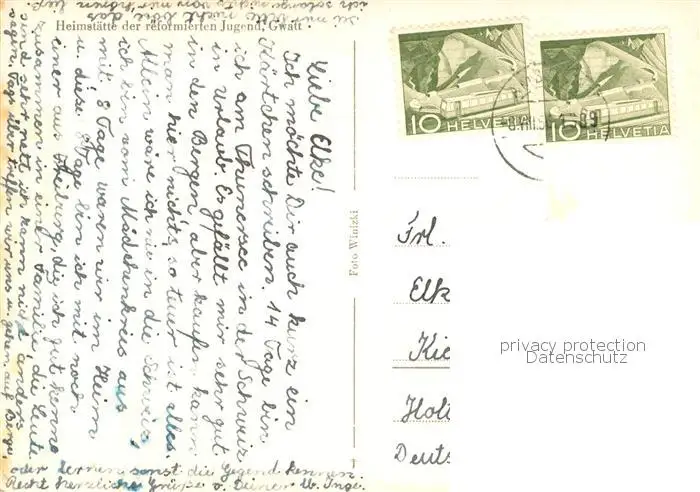 Heimstätte der reformierten Jugend, Gwatt
Liebe Elke!
Ich möchte Dir auch kurz ein
Kärtchen schreiben. 14 Tage bin
ich am Thunersee in der Schweiz
in Urlaub. Es gefällt mir sehr gut
in den Bergen, aber kaufen kann
man hier nichts, so teuer ist alles.
Allein wäre ich nie in die Schweiz,
ich bin vom Mädchenkreis aus
mit. 8 Tage waren wir im Heim
u. diese 8 Tage bin ich mit noch
einer aus Freiburg, die ich gut kenne
zusammen in einer Familie, die Leute
sind sehr nett ich kann nicht anders
sagen, Tags über treffen wir uns u. gehen auf Berge
oder lernen sonst die Gegend kennen.
Recht herzliche Grüße v. Deiner lb. Inge.
Foto Winizki
10 HELVETIA
10 HELVETIA
Frl.
Elk
Kie
Holt
Deuts
privacy protection
Datenschutz